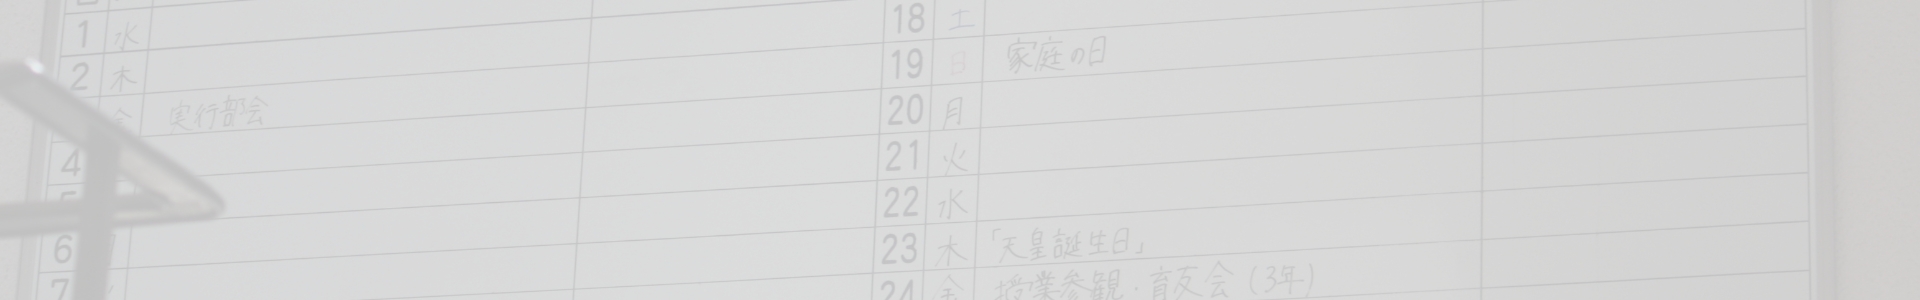 1 水
2 木
金 実行部会
4
5
6
7
18 土
19 日 家庭の日
20 月
21 火
22 水
23 木 「天皇誕生日」
24 金 授業参観・育友会(3年)